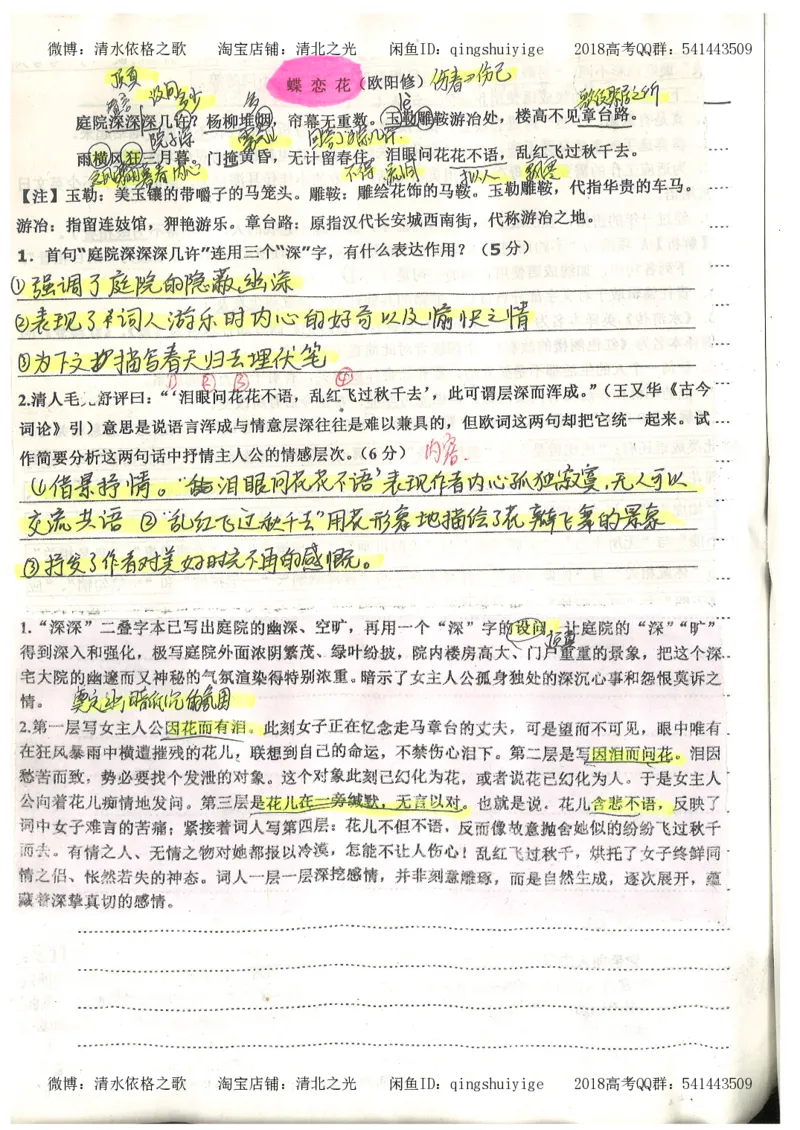 微博：清水依格之歌 淘宝店铺：清北之光 闲鱼ID：qingshuiyige 2018高考QQ群：541443509
顶真
蝶恋花（欧阳修） 伤春→伤己
庭院深深深几许？杨柳堆烟，帘幕无重数。玉勒雕鞍游冶处，楼高不见章台路。
院子深
雨横风狂三月暮。门掩黄昏，无计留春住。泪眼问花花不语，乱红飞过秋千去。
【注】玉勒：美玉镶的带嚼子的马笼头。雕鞍：雕绘花饰的马鞍。玉勒雕鞍，代指华贵的车马。
游冶：指留连妓馆，狎艳游乐。章台路：原指汉代长安城西南街，代称游冶之地。
1．首句“庭院深深深几许”连用三个“深”字，有什么表达作用？（5分）
①强调了庭院的隐蔽,幽深
②表现了词人游乐时内心的好奇以及愉快之情
③为下文描写春天归去埋伏笔
① ② ③ ④
2.清人毛 舒评曰：“‘泪眼问花花不语，乱红飞过秋千去’，此可谓层深而浑成。”（王又华《古今
词论》引）意思是说语言浑成与情意层深往往是难以兼具的，但欧词这两句却把它统一起来。试
作简要分析这两句话中抒情主人公的情感层次。（6分） 内容.
①借景抒情。“泪眼问花花不语”表现作者内心孤独寂寞,无人可以
交流共语 ②“乱红飞过秋千去”用花形象地描绘了花瓣飞舞的景象
③抒发了作者对美好时光不再的感慨。
1.“深深”二叠字本已写出庭院的幽深、空旷，再用一个“深”字的设问，让庭院的“深”“旷”
得到深入和强化，极写庭院外面浓阴繁茂、绿叶纷披，院内楼房高大、门户重重的景象，把这个深
宅大院的幽邃而又神秘的气氛渲染得特别浓重。暗示了女主人公孤身独处的深沉心事和怨恨莫诉之
情。
2.第一层写女主人公因花而有泪。此刻女子正在忆念走马章台的丈夫，可是望而不可见，眼中唯有
在狂风暴雨中横遭摧残的花儿，联想到自己的命运，不禁伤心泪下。第二层是写因泪而问花。泪因
愁苦而致，势必要找个发泄的对象。这个对象此刻已幻化为花，或者说花已幻化为人。于是女主人
公向着花儿痴情地发问。第三层是花儿在一旁缄默，无言以对。也就是说，花儿含悲不语，反映了
词中女子难言的苦痛；紧接着词人写第四层：花儿不但不语，反而像故意抛舍她似的纷纷飞过秋千
而去。有情之人、无情之物对她都报以冷漠，怎能不让人伤心！乱红飞过秋千，烘托了女子终鲜同
情之侣、怅然若失的神态。词人一层一层深挖感情，并非刻意雕琢，而是自然生成，逐次展开，蕴
藏着深挚真切的感情。
微博：清水依格之歌 淘宝店铺：清北之光 闲鱼ID：qingshuiyige 2018高考QQ群：541443509